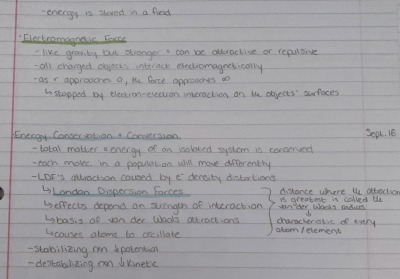 - energy is stored in a field
• Electromagnetic Force
- like gravity but stronger + can be attractive or repulsive
- all charged objects interact electromagnetically
- as r approaches 0, the force approaches ∞
↳ stopped by electron-electron interaction on the objects' surfaces
• Energy Conservation + Conversion
Sept. 16
- total matter + energy of an isolated system is conserved
- each molec. in a population will move differently
- LDF's attraction caused by e⁻ density distortions
↳ London Dispersion Forces
↳ effects depend on strength of interaction
↳ basis of van der Waals attractions
↳ causes atoms to oscillate
distance where the attraction
is greatest is called the
van der Waals radius
↓
characteristic of every
atom/element
- stabilizing rxn ↓ potential
- destabilizing rxn ↓ kinetic